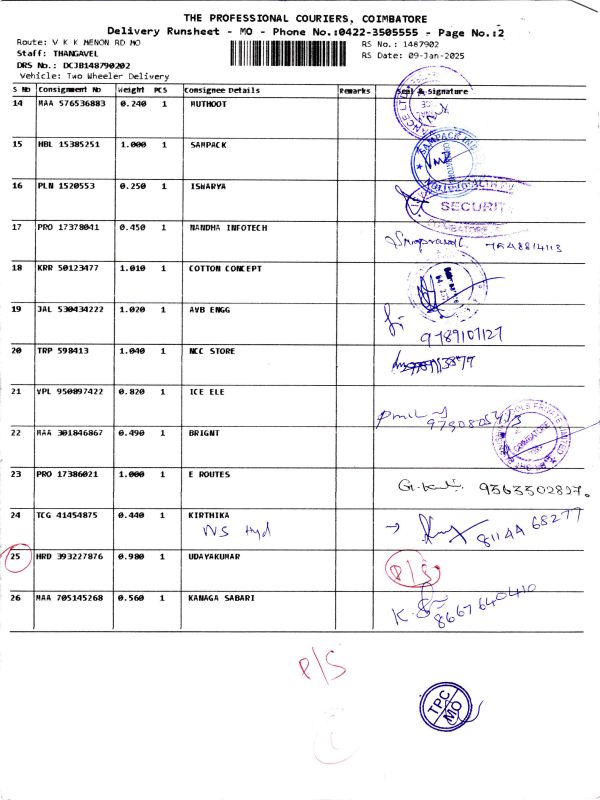 THE PROFESSIONAL COURIERS, COIMBATORE
Delivery Runsheet - MO - Phone No.:0422-3505555 - Page No.:2
Route: V K K MENON RD MO
RS No.: 1487902
Staff: THANGAVEL
RS Date: 09-Jan-2025
DRS No.: DCJB148790202
Vehicle: Two Wheeler Delivery
S No Consignment No Weight PCS Consignee Details Remarks Seal & Signature
14 MAA 576536883 0.240 1 MUTHOOT
15 HBL 15385251 1.000 1 SAMPACK
16 PLN 1520553 0.250 1 ISHARYA
SECURIT
17 PRO 17378041 0.450 1 NANDHA INFOTECH
18 KRR 50123477 1.010 1 COTTON CONCEPT
19 JAL 530434222 1.020 1 AVB ENGG
9789107127
20 TRP 598413 1.040 1 NCC STORE
21 VPL 950897422 0.820 1 ICE ELE
22 MAA 301846867 0.490 1 BRIGNT
COIMBATORE
23 PRO 17386021 1.000 1 E ROUTES
24 TCG 41454875 0.440 1 KIRTHIKA
VVS Hyd
8114A 68277
25 HRD 393227876 0.980 1 UDAYAKUMAR P/S
26 MAA 705145268 0.560 1 KANAGA SABARI
8667640410
P/S
TPC
MO